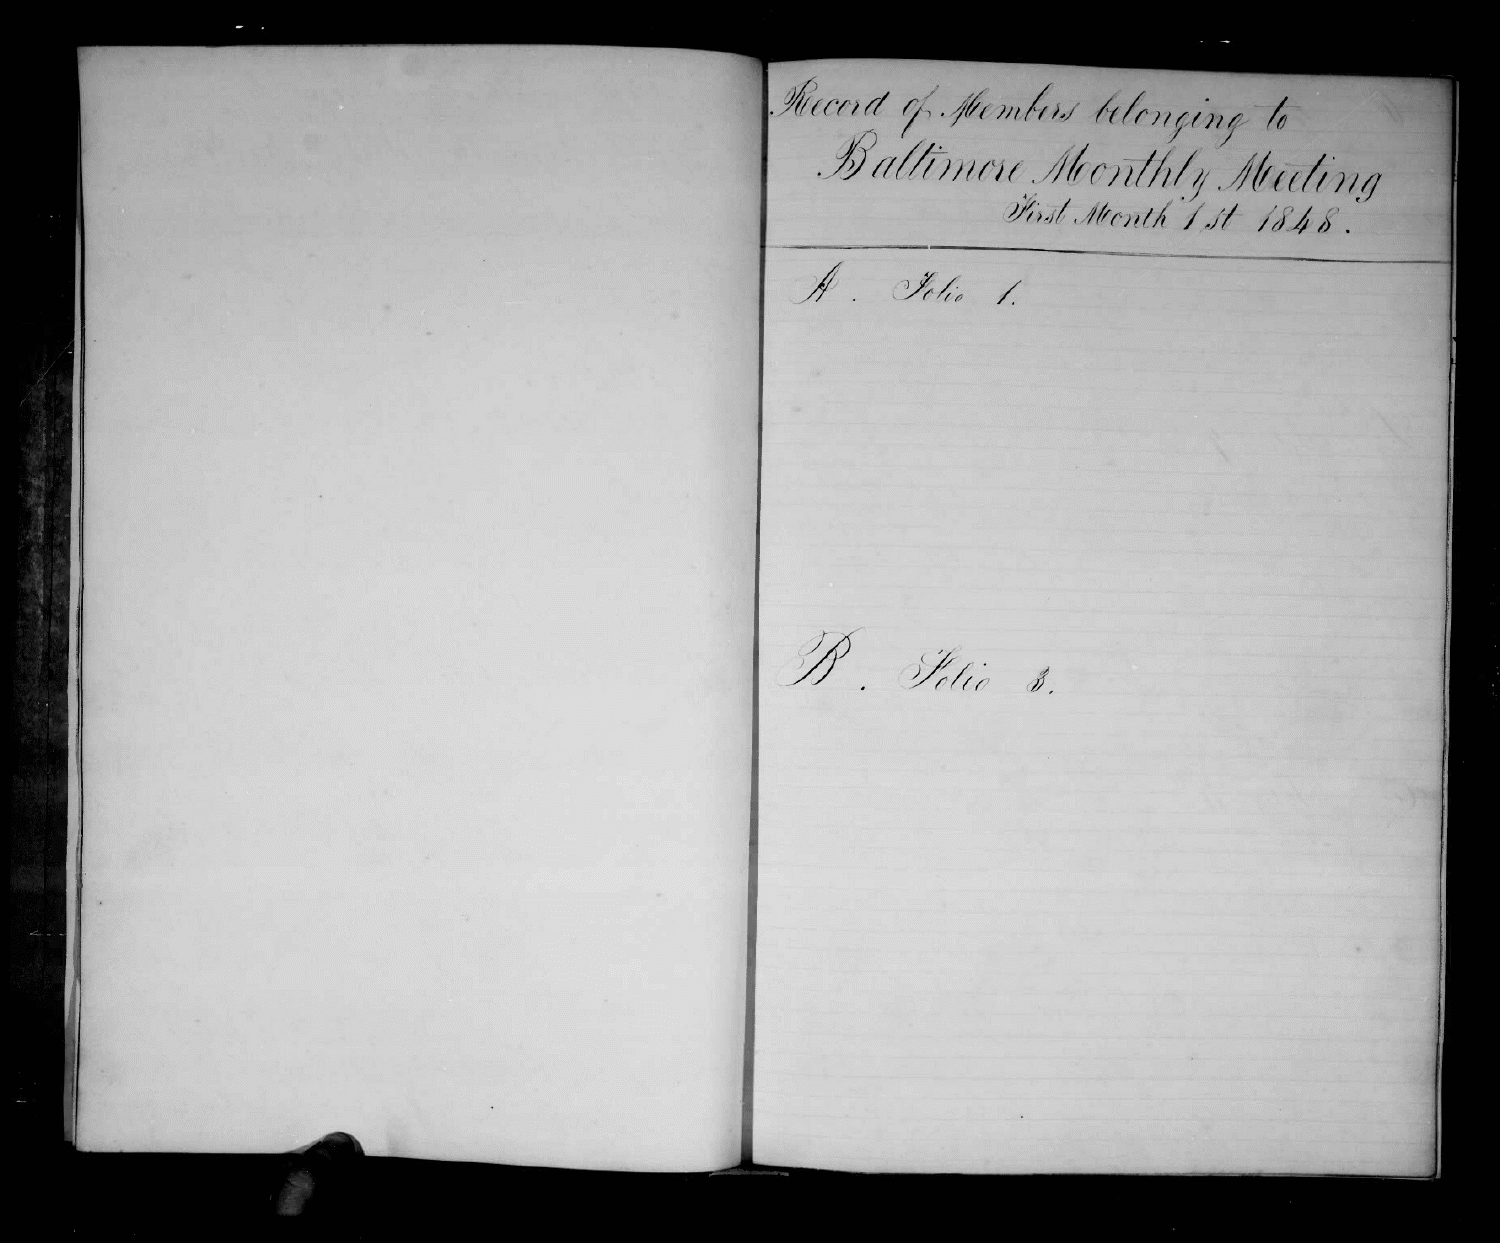 Record of Members belonging to
Baltimore Monthly Meeting
First Month 1st 1848.
A. Folio 1.
B. Folio 3.